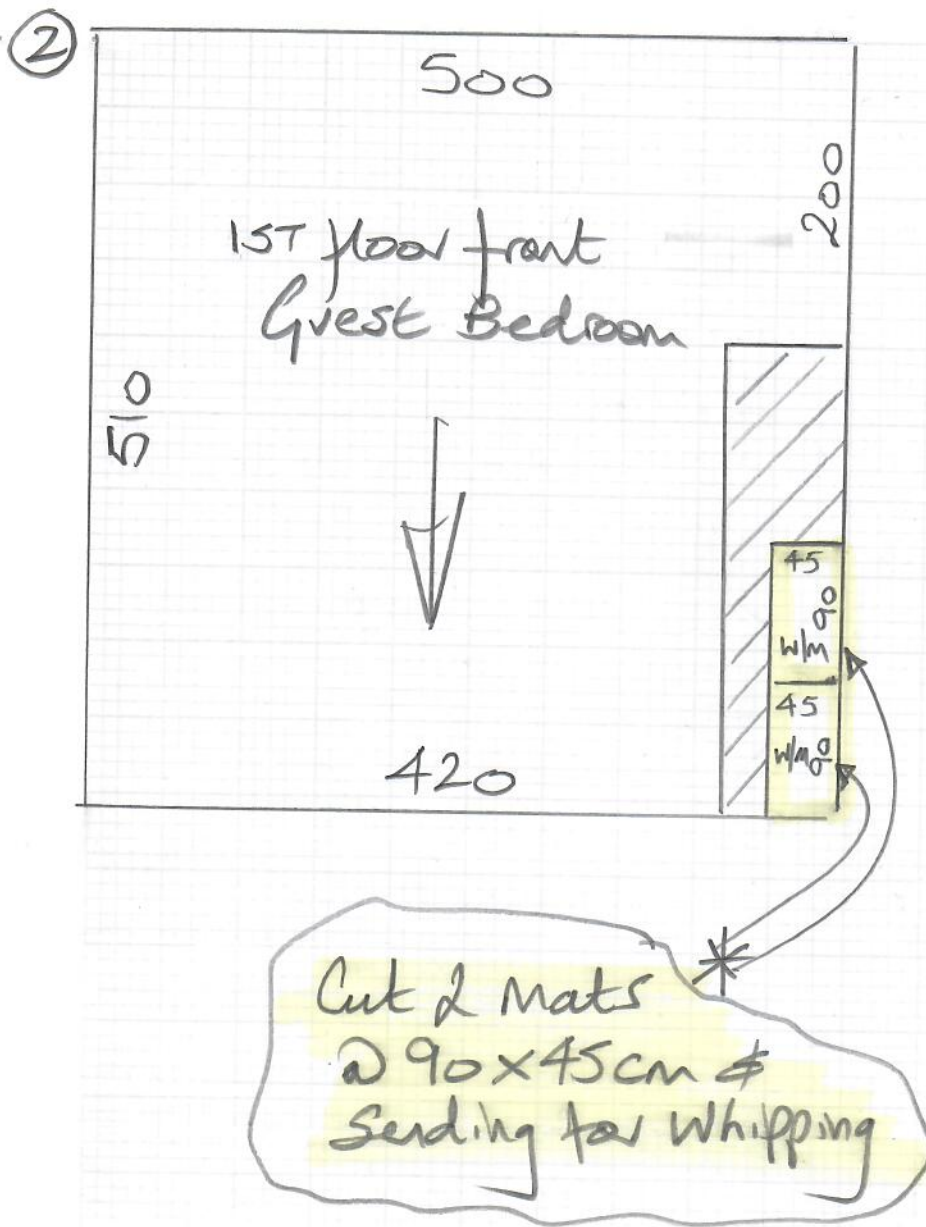 2
500
200
1ST floor front
Guest Bedroom
510
45
90
W/M
45
W/M 90
420
Cut 2 Mats
@ 90 x 45 cm &
Sending for Whipping